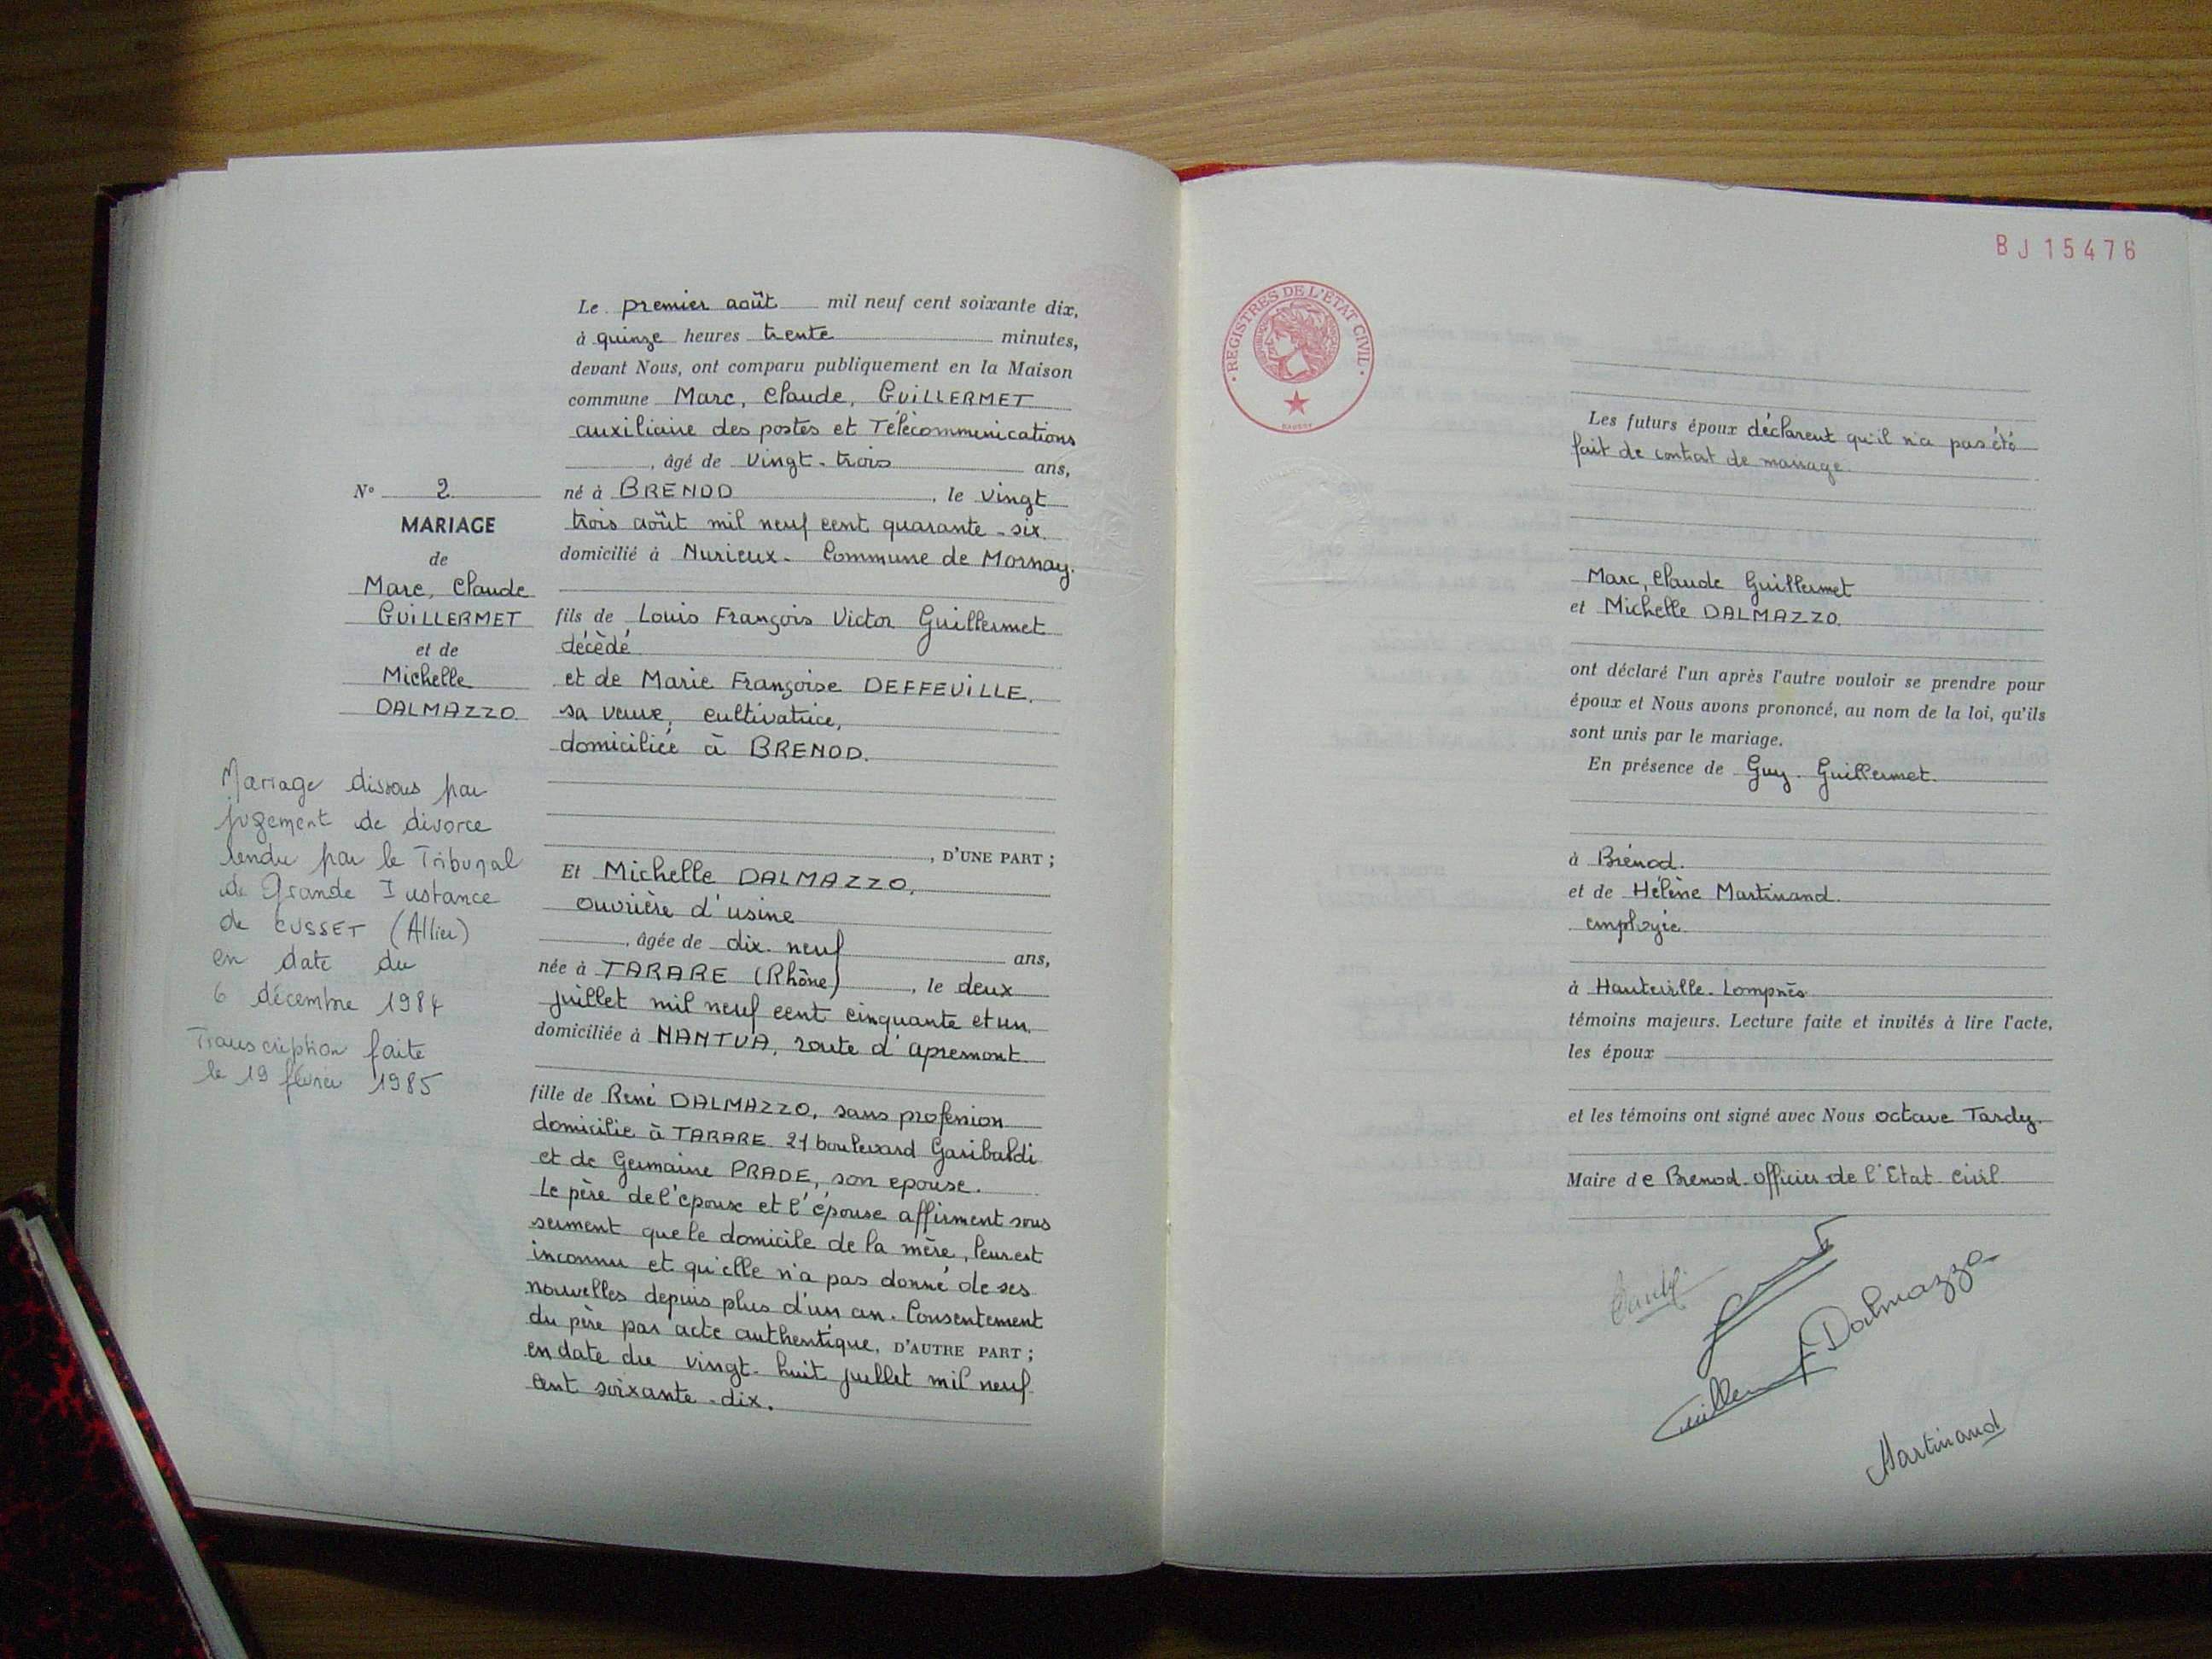 Le premier août mil neuf cent soixante dix,
à quinze heures trente minutes,
devant Nous, ont comparu publiquement en la Maison
commune Marc, Claude, GUILLERMET
auxiliaire des postes et Télécommunications
, âgé de vingt-trois ans,
né à BRENOD, le vingt
trois août mil neuf cent quarante-six.
domicilié à Nurieux- Commune de Mornay.
fils de Louis François Victor Guillermet
décédé
et de Marie Françoise DEFFEUILLE.
sa veuve, cultivatrice,
domiciliée à BRENOD.
, D'UNE PART ;
N° 2
MARIAGE
de
Marc, Claude
GUILLERMET
et de
Michelle
DALMAZZO
Mariage dissous par
jugement de divorce
rendu par le Tribunal
de Grande Instance
de CUSSET (Allier)
en date du
6 décembre 1984
Transcription faite
le 19 février 1985
Et Michelle DALMAZZO,
ouvrière d'usine
, âgée de dix-neuf ans,
née à TARARE (Rhône), le deux
juillet mil neuf cent cinquante et un.
domiciliée à NANTUA, route d'apremont
fille de René DALMAZZO, sans profession
domicilié à TARARE 21 boulevard Garibaldi
et de Germaine PRADE, son epouse.
Le père de l'épouse et l'épouse affirment sous
serment que le domicile de la mère, leur est
inconnu et qu'elle n'a pas donné de ses
nouvelles depuis plus d'un an. Consentement
du père par acte authentique, D'AUTRE PART ;
en date du vingt-huit juillet mil neuf
cent soixante-dix.
BJ 15476
REGISTRES DE L'ÉTAT CIVIL
Les futurs époux déclarent qu'il n'a pas été
fait de contrat de mariage.
Marc, Claude Guillermet
et Michelle DALMAZZO.
ont déclaré l'un après l'autre vouloir se prendre pour
époux et Nous avons prononcé, au nom de la loi, qu'ils
sont unis par le mariage.
En présence de Guy Guillermet.
à Brénod.
et de Hélène Martinand.
employée
à Hauteville-Lompnès
témoins majeurs. Lecture faite et invités à lire l'acte,
les époux
et les témoins ont signé avec Nous octave Tardy.
Maire de Brenod. officier de l'Etat Civil
Tardy
Dalmazzo
Guillermet
Martinand